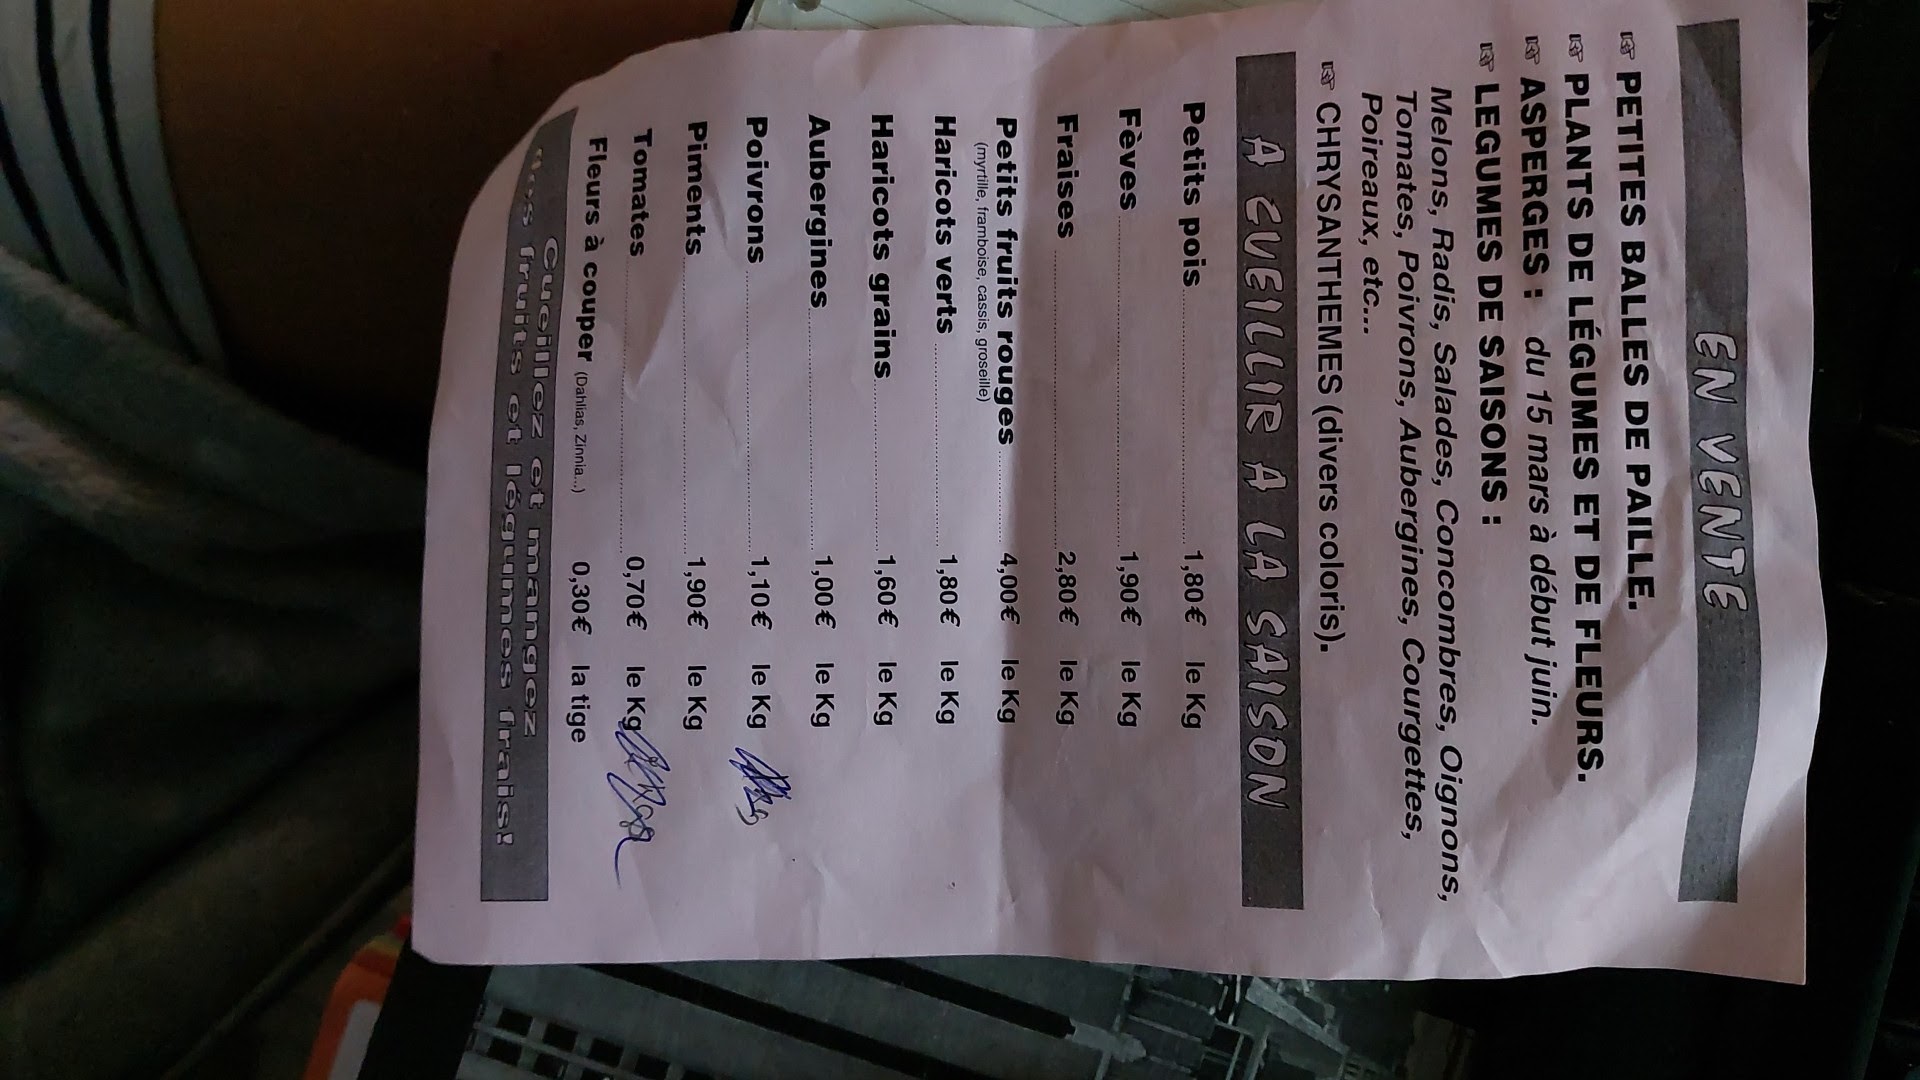 EN VENTE
☞ PETITES BALLES DE PAILLE.
☞ PLANTS DE LÉGUMES ET DE FLEURS.
☞ ASPERGES : du 15 mars à début juin.
☞ LEGUMES DE SAISONS :
Melons, Radis, Salades, Concombres, Oignons,
Tomates, Poivrons, Aubergines, Courgettes,
Poireaux, etc...
☞ CHRYSANTHEMES (divers coloris).
A CUEILLIR A LA SAISON
Petits pois 1,80€ le Kg
Fèves 1,90€ le Kg
Fraises 2,80€ le Kg
Petits fruits rouges 4,00€ le Kg
(myrtille, framboise, cassis, groseille)
Haricots verts 1,80€ le Kg
Haricots grains 1,60€ le Kg
Aubergines 1,00€ le Kg
Poivrons 1,10€ le Kg
Piments 1,90€ le Kg
Tomates 0,70€ le Kg
Fleurs à couper (Dahlias, Zinnia...) 0,30€ la tige
Cueillez et mangez
nos fruits et légumes frais!